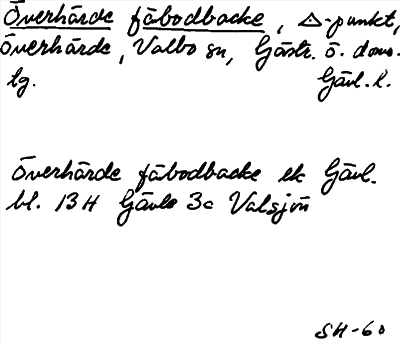 Överhärde fäbodbacke, △-punkt,
Överhärde, Valbo sn, Gästr. ö. doms.
lg. Gävl. l.
Överhärde fäbodbacke ek Gävl.
bl. 13H Gävle 3c Valsjön
SH-60